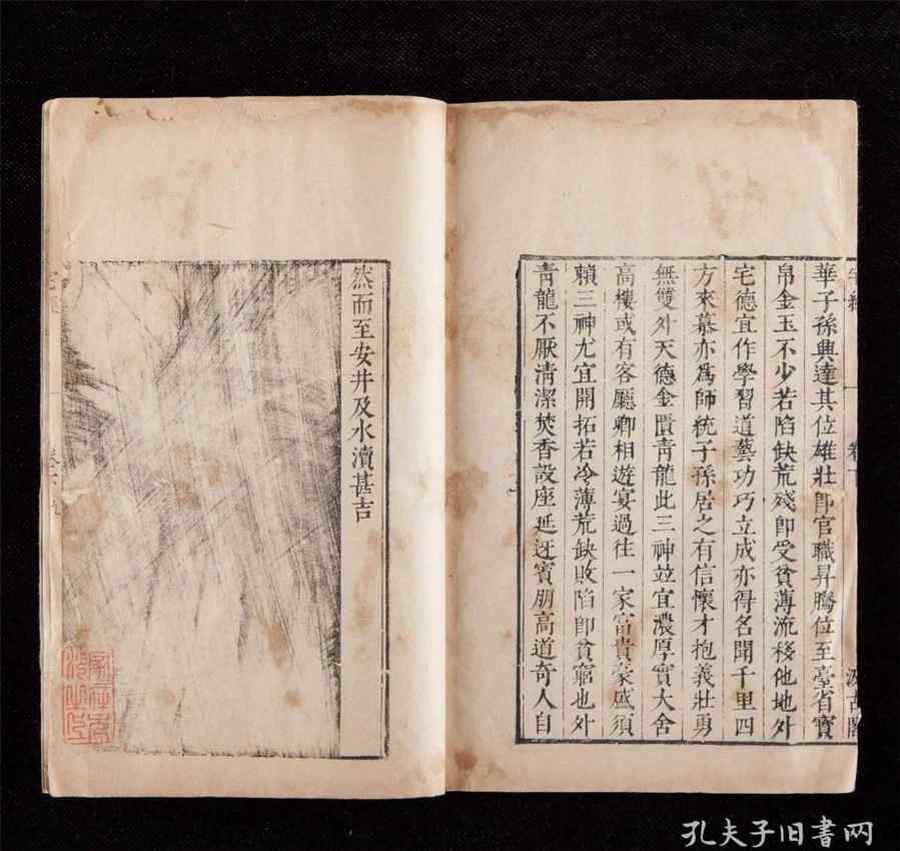 宅經
卷下
汲古閣
華子孫興達其位雄壯即官職昇騰位至臺省寶
帛金玉不少若陷缺荒殘即受貧薄流移他地外
宅德宜作學習道藝功巧立成亦得名聞千里四
方來慕亦為師統子孫居之有信懷才抱義壯勇
無雙外天德金匱青龍此三神並宜濃厚實大舍
高樓或有客廳卿相遊宴過往一家富貴豪盛須
賴三神尤宜開拓若冷薄荒缺敗陷即貧窮也外
青龍不厭清潔焚香設座延迓賓朋高道奇人自
然而至安井及水瀆甚吉
孔夫子旧書网